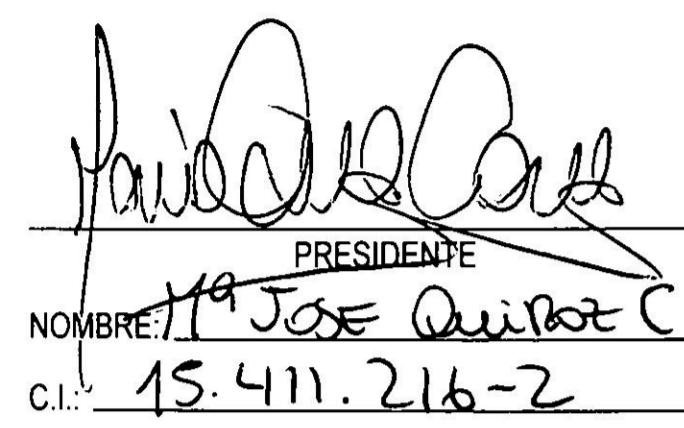 PRESIDENTE
NOMBRE: Mª JOSE QUIROZ C
C.I.: 15.411.216-2